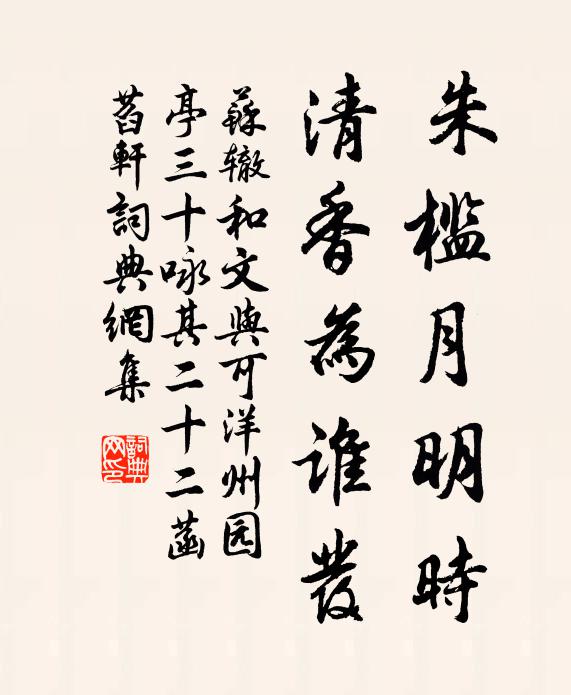 朱檻月明時
清香為誰發
蘇辙和文與可洋州园
亭三十咏其二十二菡
萏軒詞典網集
詞典
网印